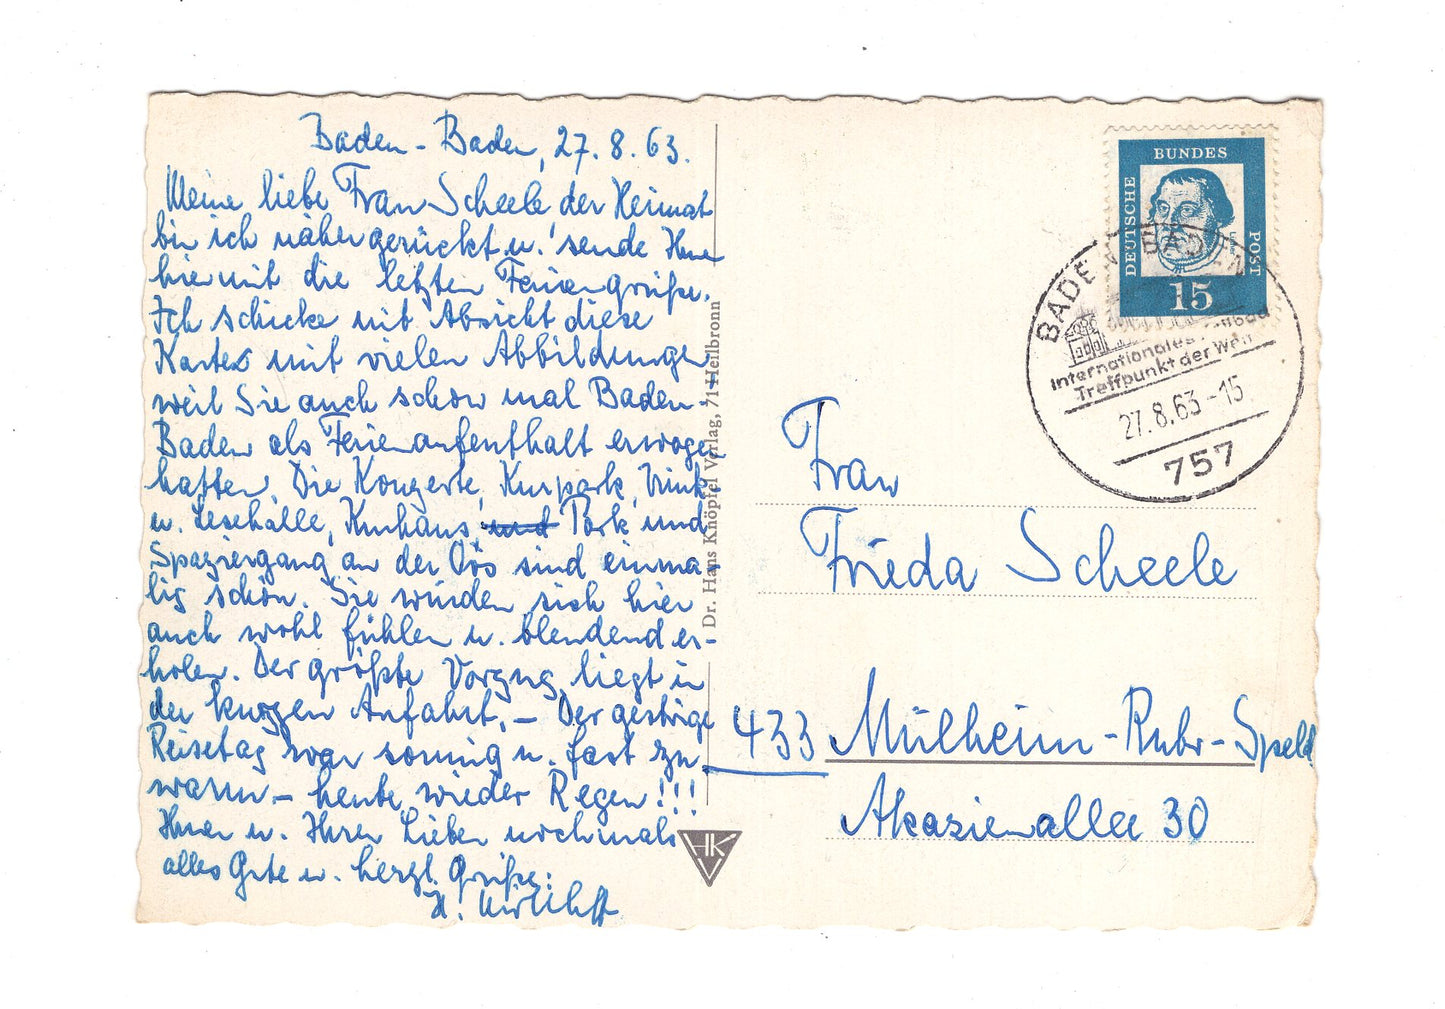 Baden-Baden, 27.8.63.
Meine liebe Frau Scheele der Heimat
bin ich näher gerückt u. sende Ihnen
hiermit die letzten Feriengrüße.
Ich schicke mit Absicht diese
Karte mit vielen Abbildungen
weil Sie auch schon mal Baden-
Baden als Ferienaufenthalt erwogen
hatten. Die Konzerte, Kurpark, Trink
u. Lesehalle, Kurhaus, und Park und
Spaziergang an der Oos sind einma-
lig schön. Sie würden sich hier
auch wohl fühlen u. blendend er-
holen. Der größte Vorzug liegt in
der kurzen Anfahrt. – Der gestrige
Reisetag war sonnig u. fast zu
warm – heute wieder Regen!!!
Ihnen u. Ihren Lieben nochmals
alles Gute u. herzl. Grüße:
H.
Dr. Hans Knöpfel Verlag, 71 Heilbronn
HK
V
DEUTSCHE
BUNDES
POST
15
BADEN-BADEN
Internationales
Treffpunkt der Welt
27.8.63-15
757
Frau
Frieda Scheele
433 Mülheim-Ruhr-Speld
Akazienallee 30